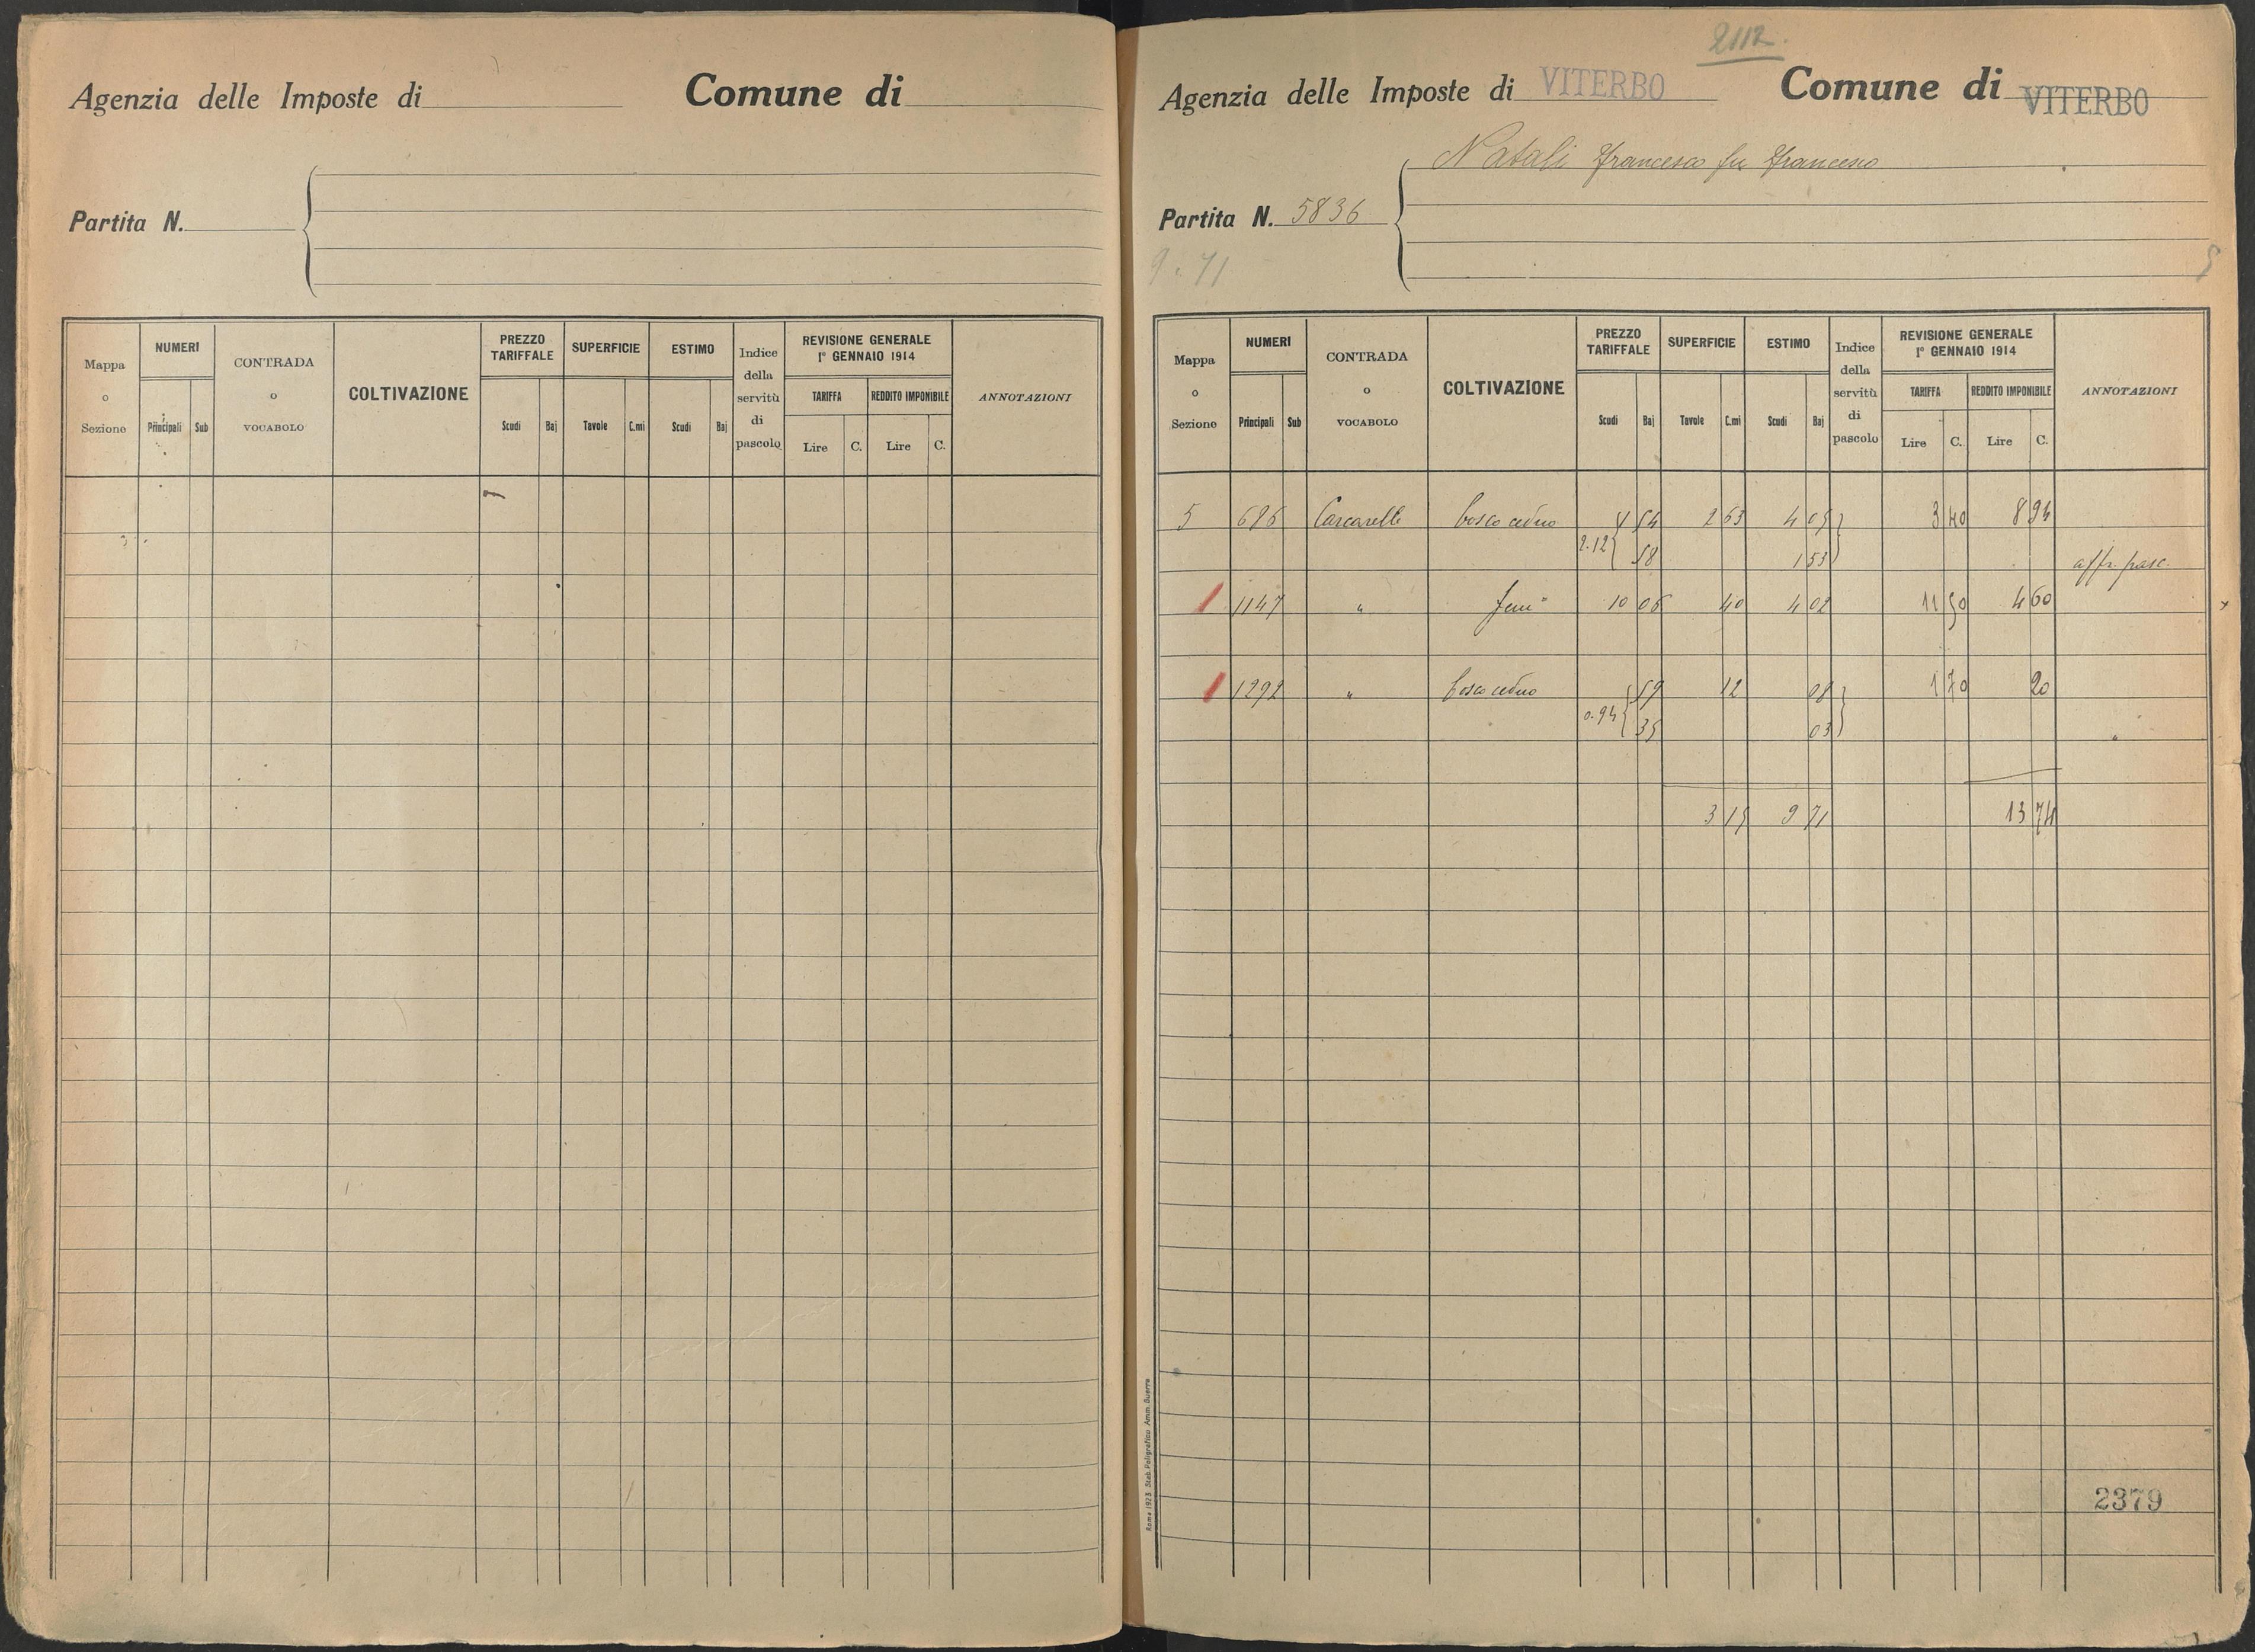 Agenzia delle Imposte di Comune di
Partita N.
Mappa o Sezione NUMERI CONTRADA o VOCABOLO COLTIVAZIONE PREZZO TARIFFALE SUPERFICIE ESTIMO Indice della servitù di pascolo REVISIONE GENERALE 1° GENNAIO 1914 ANNOTAZIONI
TARIFFA REDDITO IMPONIBILE
Principali Sub Scudi Baj Tavole C.mi Scudi Baj Lire C. Lire C.
2112.
Agenzia delle Imposte di VITERBO Comune di VITERBO
Natali Francesco fu Francesco
Partita N. 5836
9.71
Mappa o Sezione NUMERI CONTRADA o VOCABOLO COLTIVAZIONE PREZZO TARIFFALE SUPERFICIE ESTIMO Indice della servitù di pascolo REVISIONE GENERALE 1° GENNAIO 1914 ANNOTAZIONI
TARIFFA REDDITO IMPONIBILE
Principali Sub Scudi Baj Tavole C.mi Scudi Baj Lire C. Lire C.
5 686 Carcarelle bosco ceduo 1 54 2 63 4 05 3 40 8 94
2.12 58 1 53 affr. pasc.
1147 " 10 06 40 4 02 11 50 4 60
1292 " bosco ceduo 59 12 08 1 70 20
0.94 35 03 "
3 15 9 71 13 74
2379
Roma 1923. Stab. Poligrafico Amm. Guerra